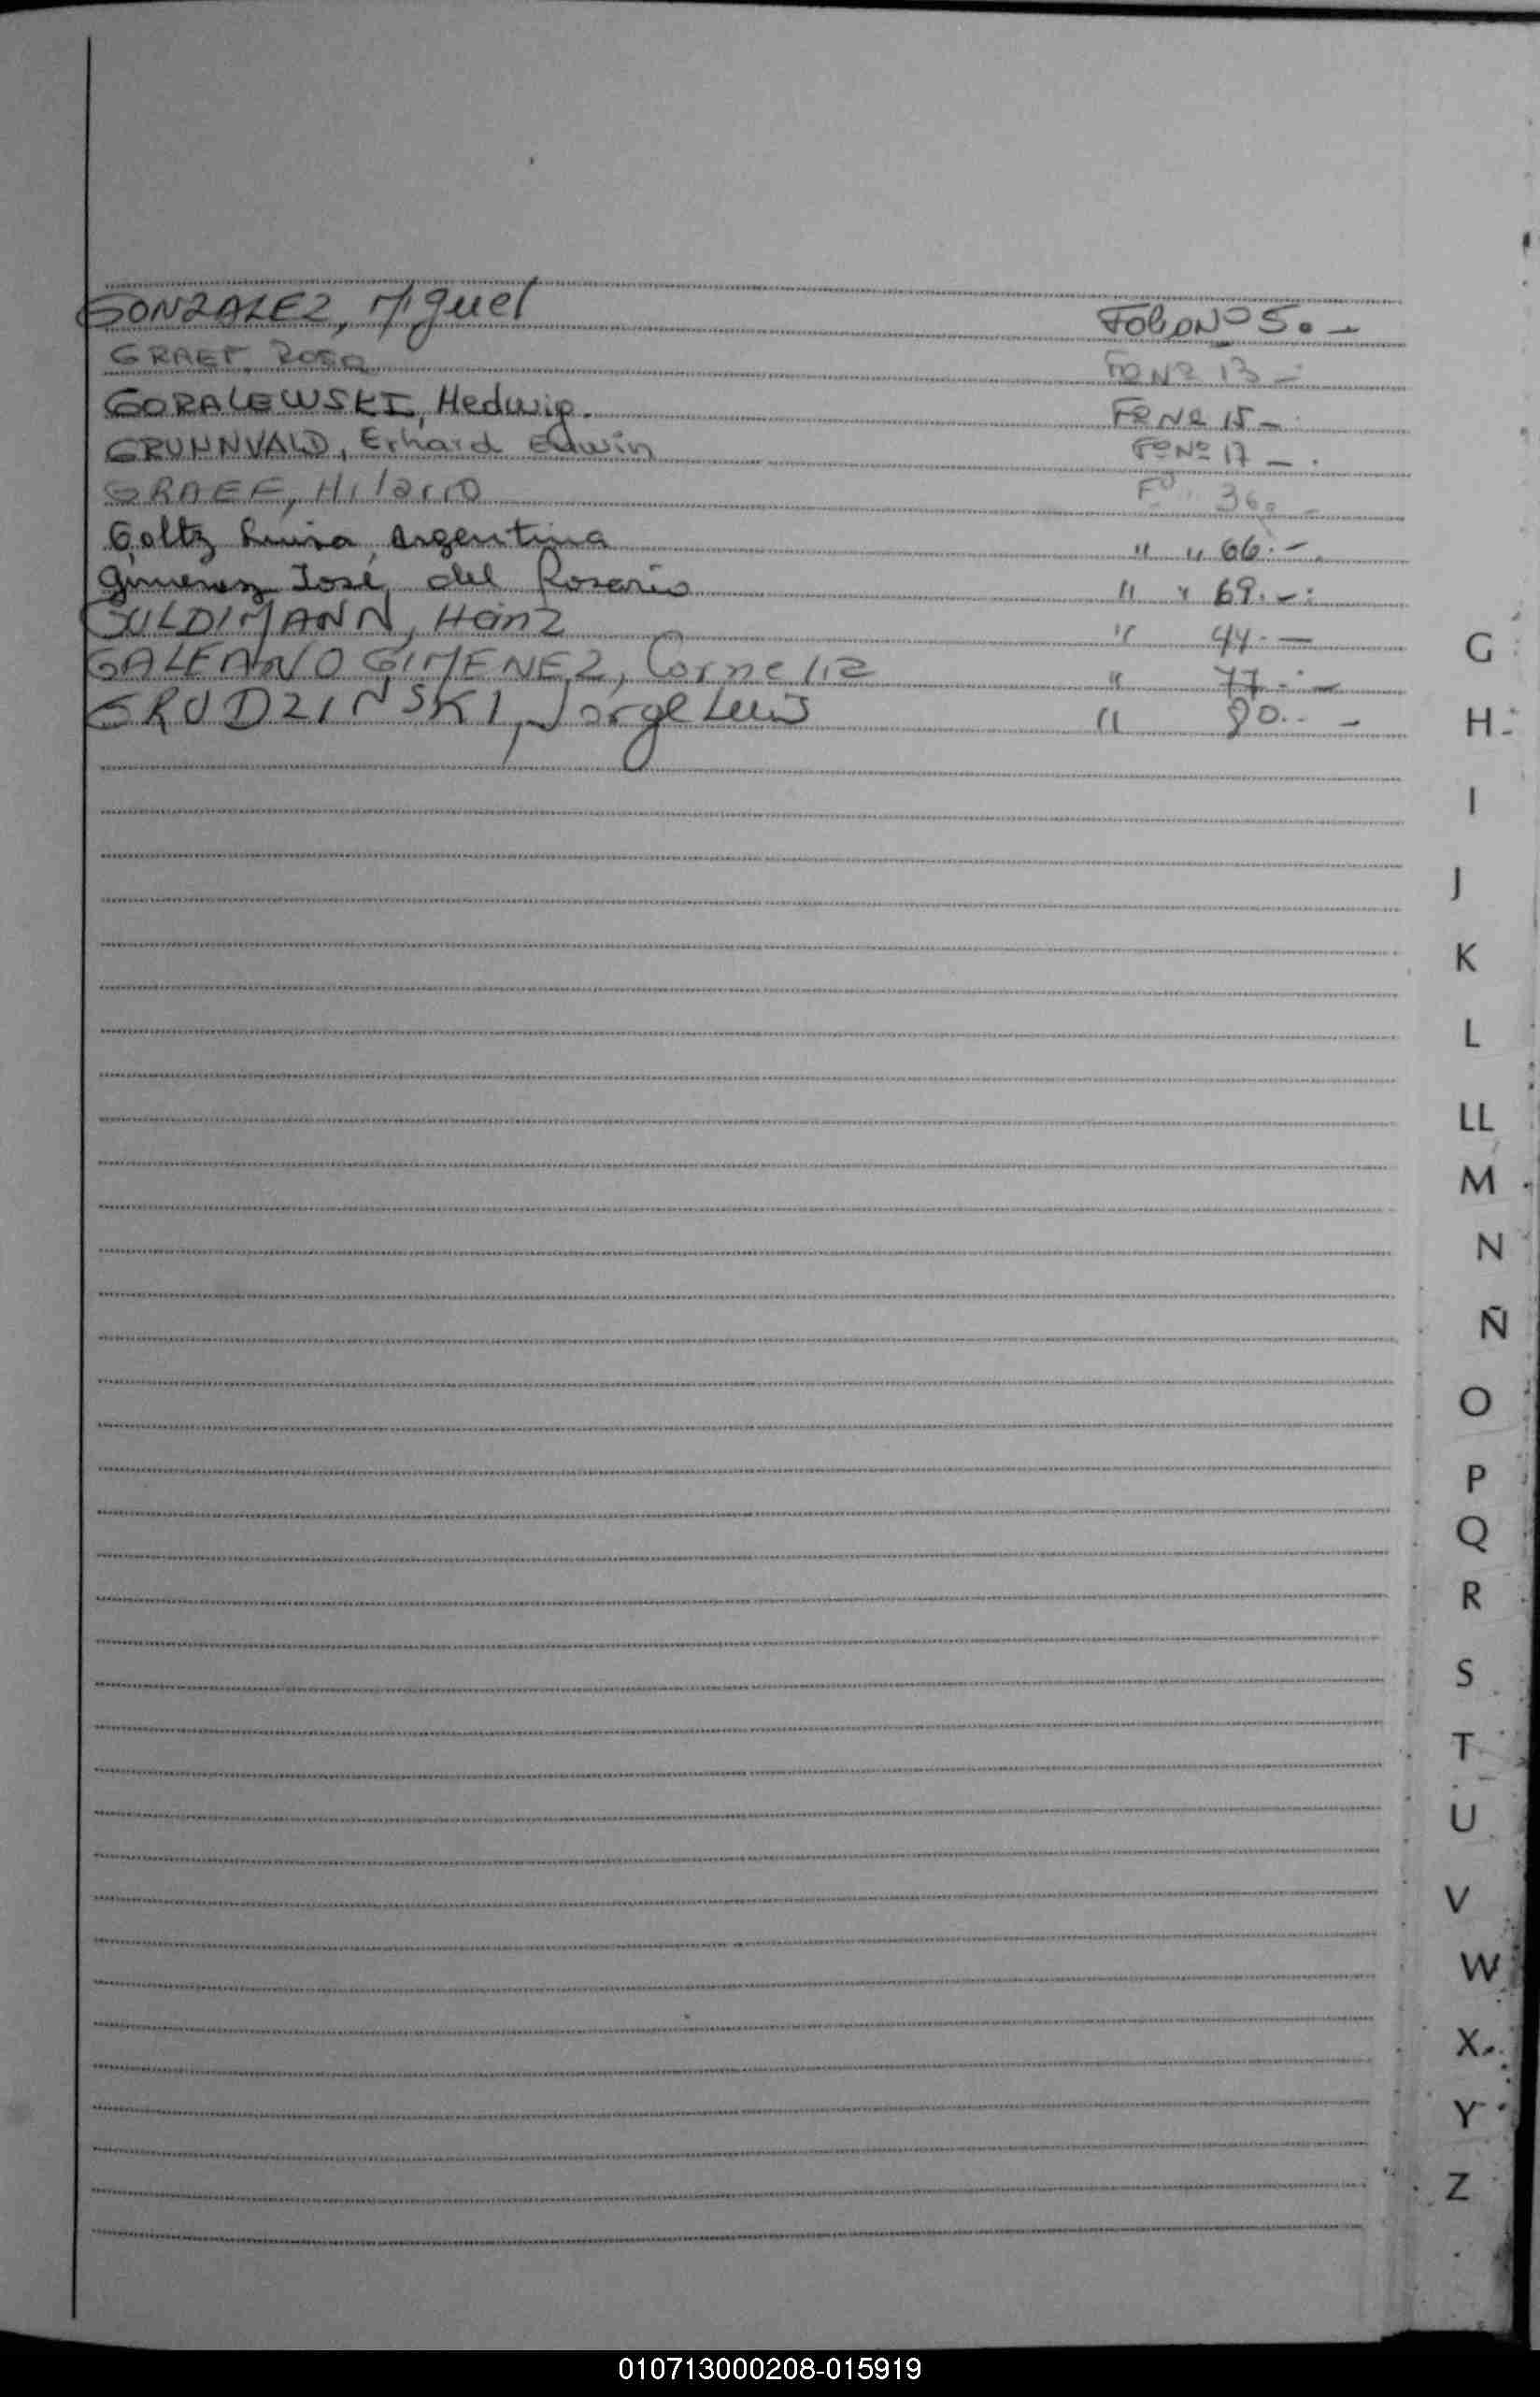 GONZALEZ, Miguel Folio Nº 5.-
GRAEF, Rosa Fº Nº 13 -
GORALEWSKI, Hedwig. Fº Nº 15 -
GRUNNVALD, Erhard Edwin Fº Nº 17 -.
GRAEF, Hilario Fº. 36. -
Goltz Luisa, Argentina " " 66.-
Gimenez José, del Rosario " " 69.-
GULDIMANN, Heinz " 44.-
GALEANO GIMENEZ, Cornelia " 77.-
GRUDZINSKI, Jorge Luis " 90.. -
G
H
I
J
K
L
LL
M
N
Ñ
O
P
Q
R
S
T
U
V
W
X
Y
Z
010713000208-015919